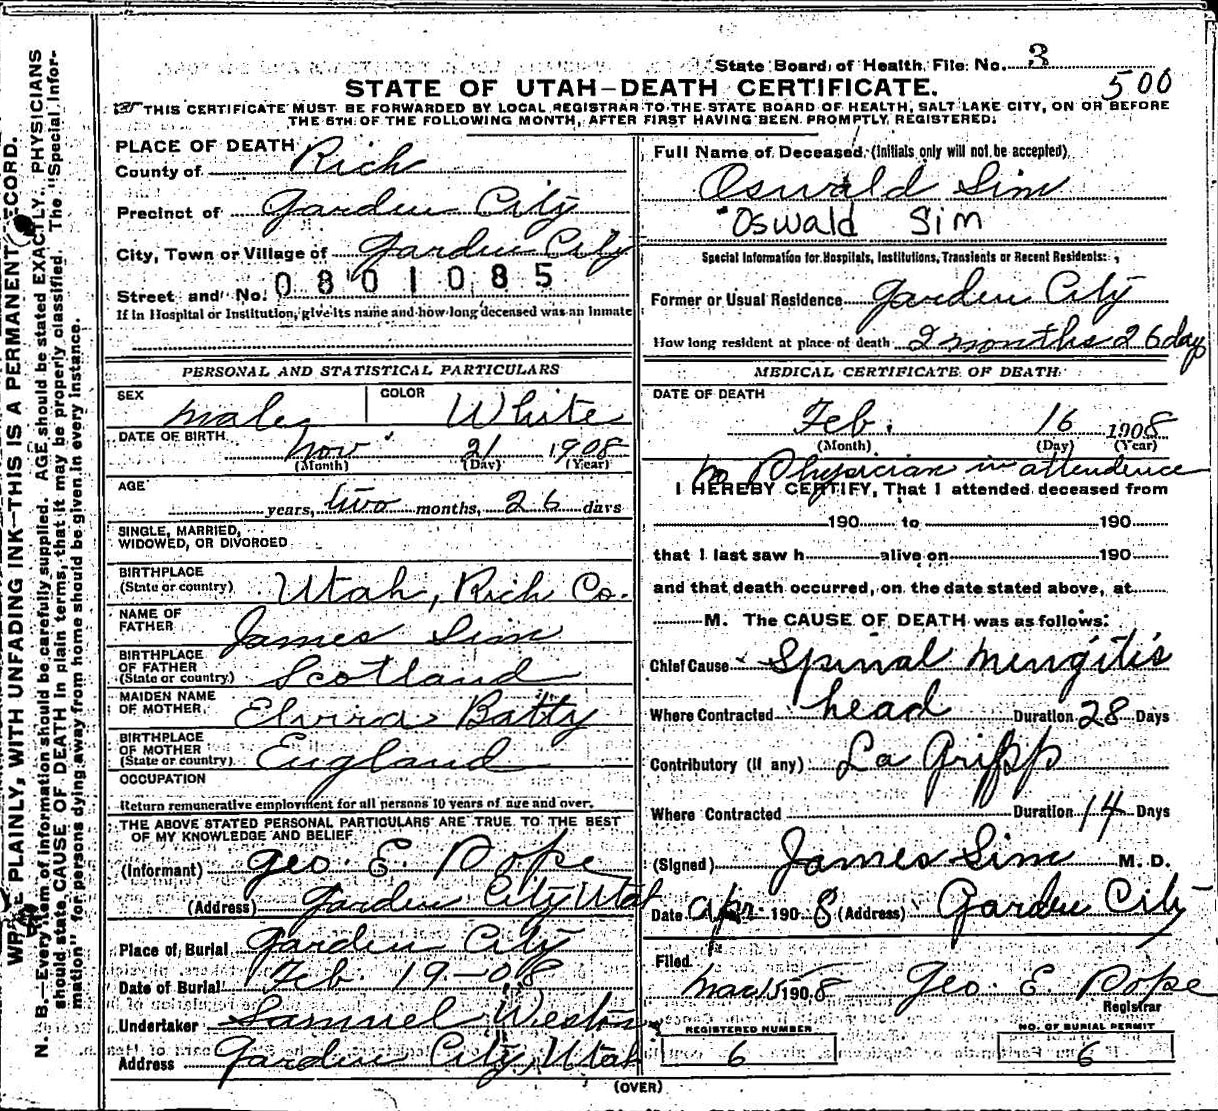 State Board of Health File No. 3
500
STATE OF UTAH—DEATH CERTIFICATE.
THIS CERTIFICATE MUST BE FORWARDED BY LOCAL REGISTRAR TO THE STATE BOARD OF HEALTH, SALT LAKE CITY, ON OR BEFORE
THE 5TH OF THE FOLLOWING MONTH, AFTER FIRST HAVING BEEN PROMPTLY REGISTERED.
PLACE OF DEATH
County of Rich
Precinct of Garden City
City, Town or Village of Garden City
Street and No. 0801085
If in Hospital or Institution, give its name and how long deceased was an inmate
PERSONAL AND STATISTICAL PARTICULARS
SEX male COLOR White
DATE OF BIRTH Nov 21 1908
(Month) (Day) (Year)
AGE
years, two months, 26 days
SINGLE, MARRIED,
WIDOWED, OR DIVORCED
BIRTHPLACE
(State or country) Utah, Rich Co.
NAME OF
FATHER James Sim
BIRTHPLACE
OF FATHER
(State or country) Scotland
MAIDEN NAME
OF MOTHER Elvira Batty
BIRTHPLACE
OF MOTHER
(State or country) England
OCCUPATION
Return remunerative employment for all persons 10 years of age and over.
THE ABOVE STATED PERSONAL PARTICULARS ARE TRUE TO THE BEST
OF MY KNOWLEDGE AND BELIEF
(Informant) Geo. E. Pope
(Address) Garden City Utah
Place of Burial Garden City
Date of Burial Feb. 19-08
Undertaker Samuel Weston
Address Garden City, Utah
Full Name of Deceased (Initials only will not be accepted)
Oswald Sim
Oswald Sim
Special Information for Hospitals, Institutions, Transients or Recent Residents:
Former or Usual Residence Garden City
How long resident at place of death 2 months 26 day
MEDICAL CERTIFICATE OF DEATH
DATE OF DEATH
Feb. 16 1908
(Month) (Day) (Year)
No Physician in attendence
I HEREBY CERTIFY, That I attended deceased from
190 to 190
that I last saw h alive on 190
and that death occurred, on the date stated above, at
M. The CAUSE OF DEATH was as follows:
Chief Cause Spinal Mingitis
Where Contracted head Duration 28 Days
Contributory (if any) La Gripp
Where Contracted Duration 14 Days
(Signed) James Sim M. D.
Date Apr 190 8 (Address) Garden City
Filed
Mar 15 190 8 Geo. E. Pope
Registrar
REGISTERED NUMBER
6
NO. OF BURIAL PERMIT
6
(OVER)
WRITE PLAINLY, WITH UNFADING INK—THIS IS A PERMANENT RECORD.
N. B.—Every item of information should be carefully supplied. AGE should be stated EXACTLY. PHYSICIANS
should state CAUSE OF DEATH in plain terms, that it may be properly classified. The "Special Infor-
mation" for persons dying away from home should be given in every instance.